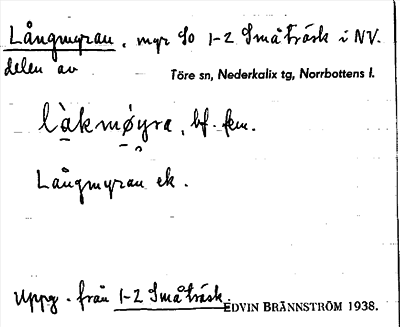 Långmyran, myr So 1-2 Småträsk i NV.
delen av
Töre sn, Nederkalix tg, Norrbottens l.
làkmøyra, bf. fem.
Långmyran ek.
Uppg. från 1-2 Småträsk.
EDVIN BRÄNNSTRÖM 1938.